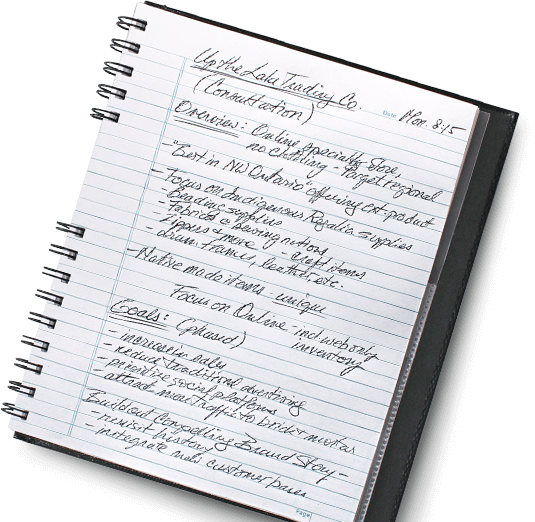 Up the Lake Trading Co.
(Consultation)
Date Mon. 8:15
Overview: Online specialty store,
no clothing - target regional
"Best in NW Ontario" offering ext. product
- Focus on Indigenous Regalia supplies
- Beading supplies
- Fabrics & sewing notions
- Zippers & more - craft items
- drum frames, leather, etc.
- Native made items - unique
Focus on Online - incl. web only
inventory
Goals: (phased)
- increase in sales
- reduce traditional advertising
- prioritize social platforms
- attract more traffic to brick & mortar
Build out Compelling Brand Story -
- revisit history
- integrate new customer bases
Page